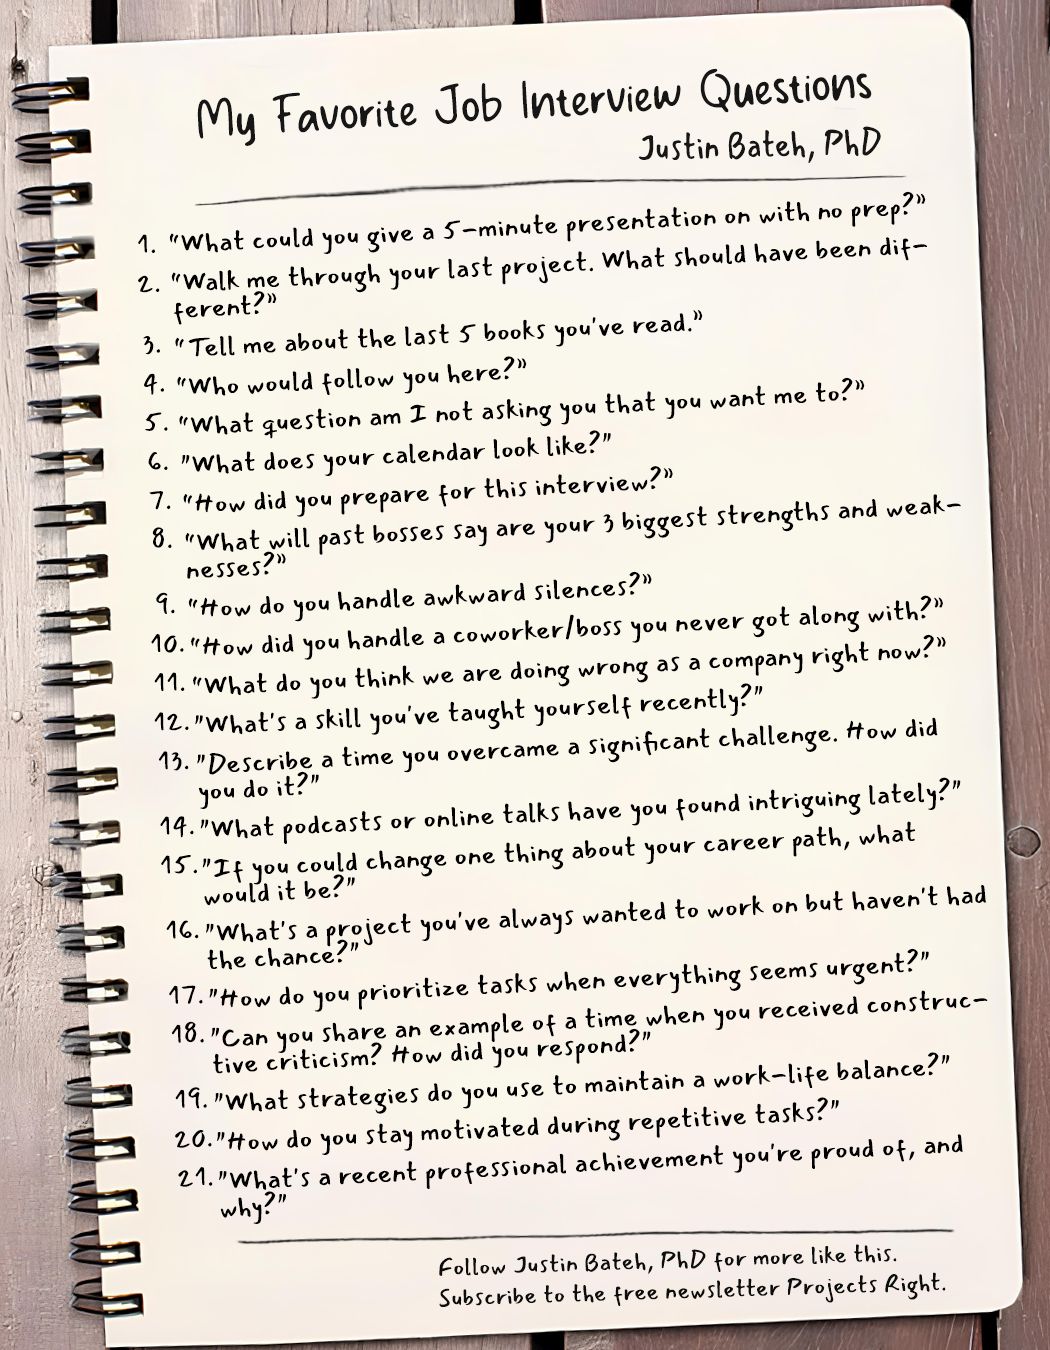 My Favorite Job Interview Questions
Justin Bateh, PhD
1. "What could you give a 5-minute presentation on with no prep?"
2. "Walk me through your last project. What should have been dif-
ferent?"
3. "Tell me about the last 5 books you've read."
4. "Who would follow you here?"
5. "What question am I not asking you that you want me to?"
6. "What does your calendar look like?"
7. "How did you prepare for this interview?"
8. "What will past bosses say are your 3 biggest strengths and weak-
nesses?"
9. "How do you handle awkward silences?"
10. "How did you handle a coworker/boss you never got along with?"
11. "What do you think we are doing wrong as a company right now?"
12. "What's a skill you've taught yourself recently?"
13. "Describe a time you overcame a significant challenge. How did
you do it?"
14. "What podcasts or online talks have you found intriguing lately?"
15. "If you could change one thing about your career path, what
would it be?"
16. "What's a project you've always wanted to work on but haven't had
the chance?"
17. "How do you prioritize tasks when everything seems urgent?"
18. "Can you share an example of a time when you received construc-
tive criticism? How did you respond?"
19. "What strategies do you use to maintain a work-life balance?"
20. "How do you stay motivated during repetitive tasks?"
21. "What's a recent professional achievement you're proud of, and
why?"
Follow Justin Bateh, PhD for more like this.
Subscribe to the free newsletter Projects Right.